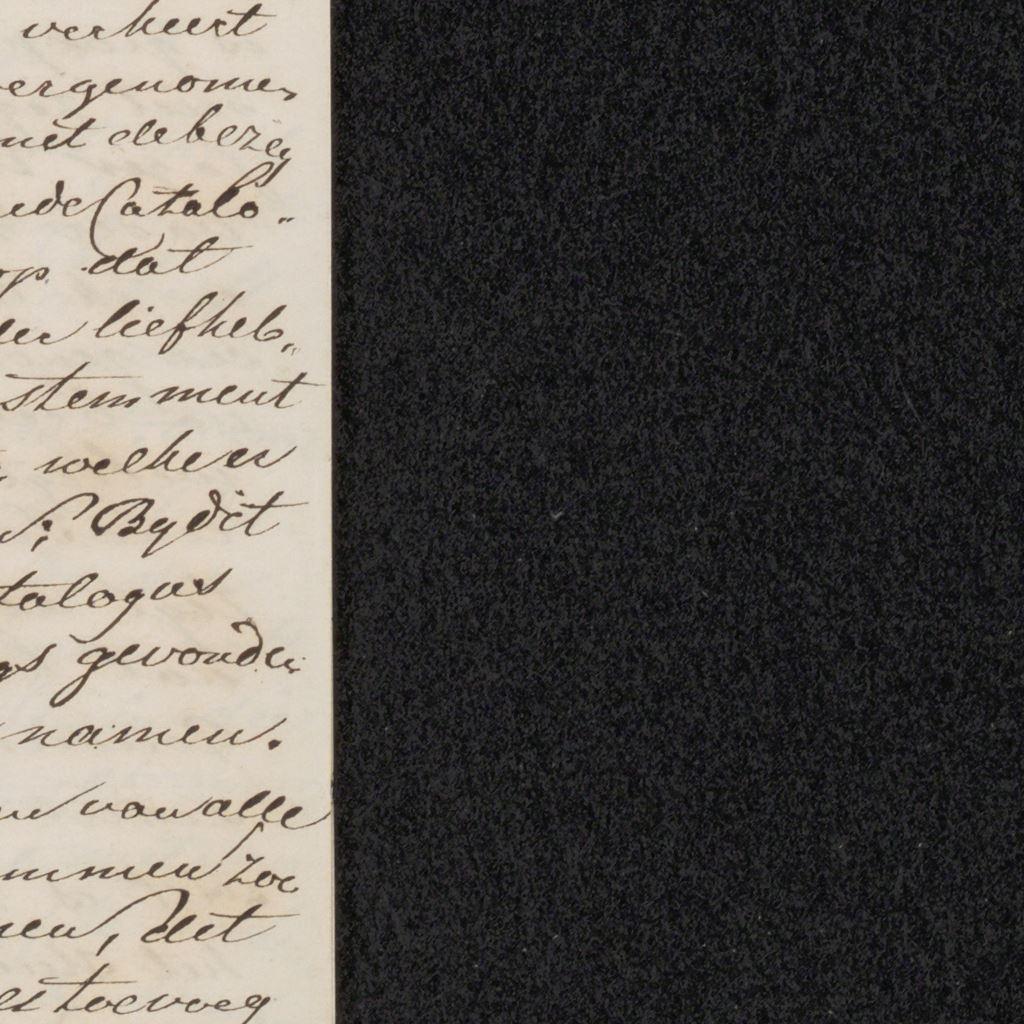 verkeert
ergenomen
met de bezig
ede Catalo„
op dat
der liefheb„
stemment
welken
By dit
talogus
gs gevonden
namen.
van alle
ommen zoo
nen, det
es toevoeg